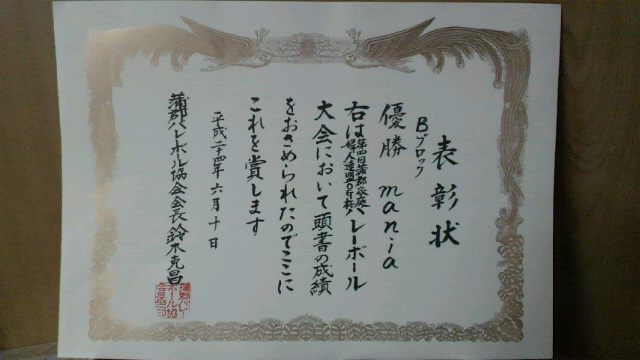 表彰状
Bブロック
優勝 mania
右は第四回蒲郡家庭婦人連盟OG杯バレーボール
大会において頭書の成績
をおさめられたのでここに
これを賞します
平成二十四年六月十日
蒲郡バレーボール協会会長 鈴木克昌